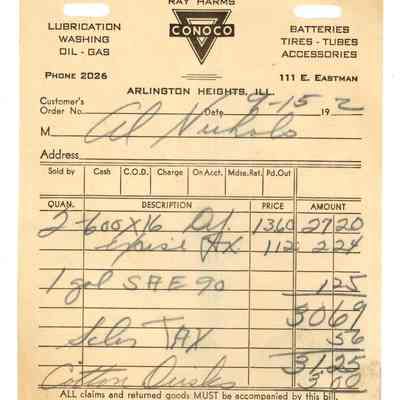 RAY HARMS
CONOCO
LUBRICATION
WASHING
OIL - GAS
BATTERIES
TIRES - TUBES
ACCESSORIES
PHONE 2026
111 E. EASTMAN
ARLINGTON HEIGHTS, ILL.
Customer's
Order No. Date 9-15 19 2
M Al Nichols
Address
Sold by Cash C.O.D. Charge On Acct. Mdse. Ret. Pd. Out
QUAN. DESCRIPTION PRICE AMOUNT
2 - 600 X 16 1360 2720
TAX 112 224
1 gal SAE 90 125
3069
Sales TAX 56
3125
3.00
ALL claims and returned goods MUST be accompanied by this bill.